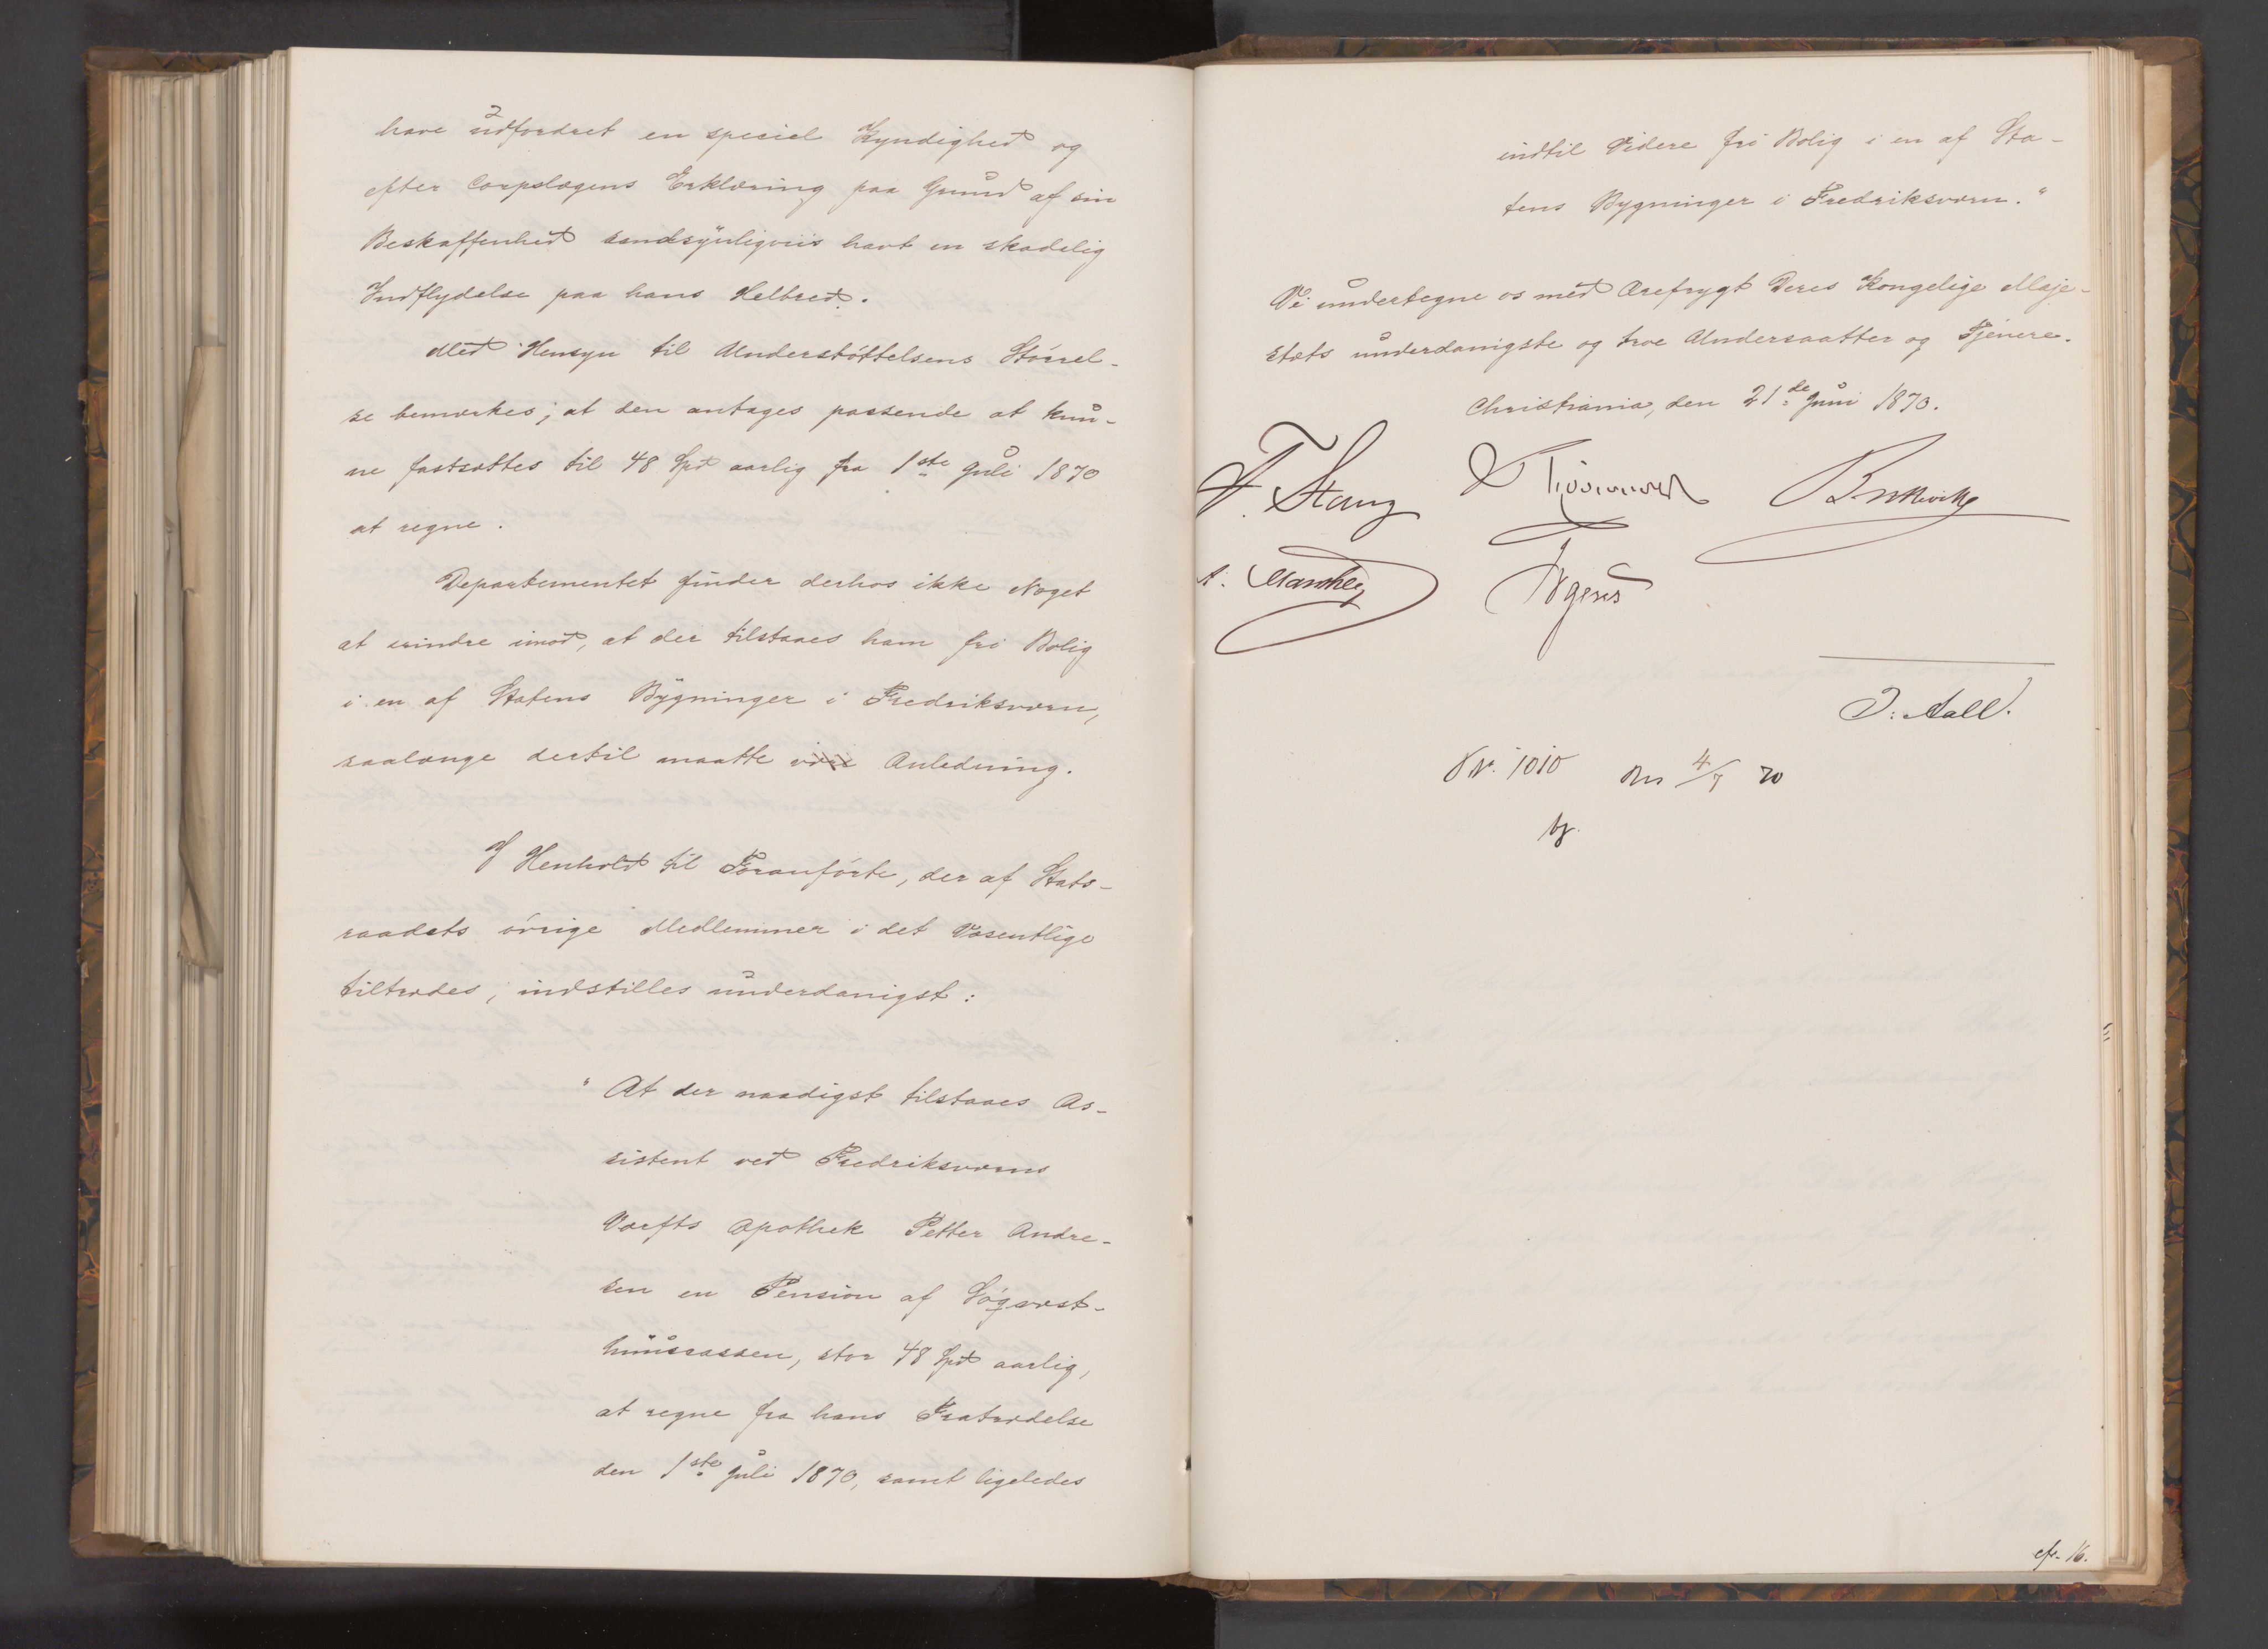 have udfordret en speciel Kyndighed og
efter Corpslægens Erklæring paa Grund af sin
Beskaffenhed sandsynligviis havt en skadelig
Indflydelse paa hans Helbred.
Med Hensyn til Understøttelsens Størrel-
se bemærkes, at den antages passende at kun-
ne fastsættes til 48 Spd aarlig fra 1ste Juli 1870
at regne.
Departementet finder derhos ikke Noget
at erindre imod, at der tilstaaes ham fri Bolig
i en af Statens Bygninger i Fredriksværn,
saalænge dertil maatte være Anledning.
I Henhold til Foranførte, der af Stats-
raadets øvrige Medlemmer i det Væsentlige
tiltrædes, indstilles underdanigst:
"At der naadigst tilstaaes As-
sistent ved Fredriksværns
Værfts Apothek Petter Andre-
sen en Pension af Søqvæst-
huuscassen, stor 48 Spd aarlig,
at regne fra hans Fratrædelse
den 1ste Juli 1870, samt ligeledes
indtil Videre fri Bolig i en af Sta-
tens Bygninger i Fredriksværn."
Vi undertegne os med Ærefrygt Deres Kongelige Maje-
stæts underdanigste og troe Undersaatter og Tjenere.
Christiania, den 21de Juni 1870.
F. Stang
A. Manthey
J. Aall.
No. 1010 4/7 70
cfr. 16.